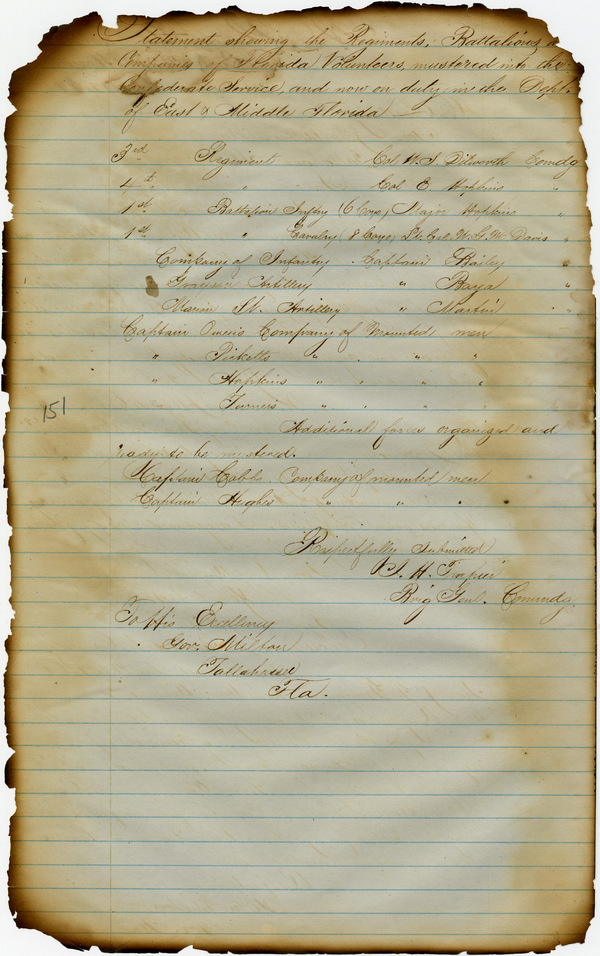 Statement showing the Regiments, Battalions &
Companies of Florida Volunteers, mustered into the
Confederate Service, and now on duty in the Dept.
of East & Middle Florida
3rd Regiment Col. W. S. Dilworth Comdg
4th " Col E. Hopkins "
1st Battalion Inftry (6 Coys) Major Hopkins "
1st " Cavalry (8 Coys) Lt. Col. W. G. M. Davis "
Company of Infantry Captain Bailey "
Artillery " Baya "
Marion Lt. Artillery " Martin "
Captain Owens Company of Mounted men
" Picketts " " "
" Hopkins " " "
Turners " " "
Additional forces organized and
ready to be mustered.
Captain Cobbs Company of mounted men
Captain Hughes " " "
151
Respectfully Submitted
J. H. Trapier
Brig Genl. Commdg.
To His Excellency
Gov. Milton
Tallahassee
Fla.